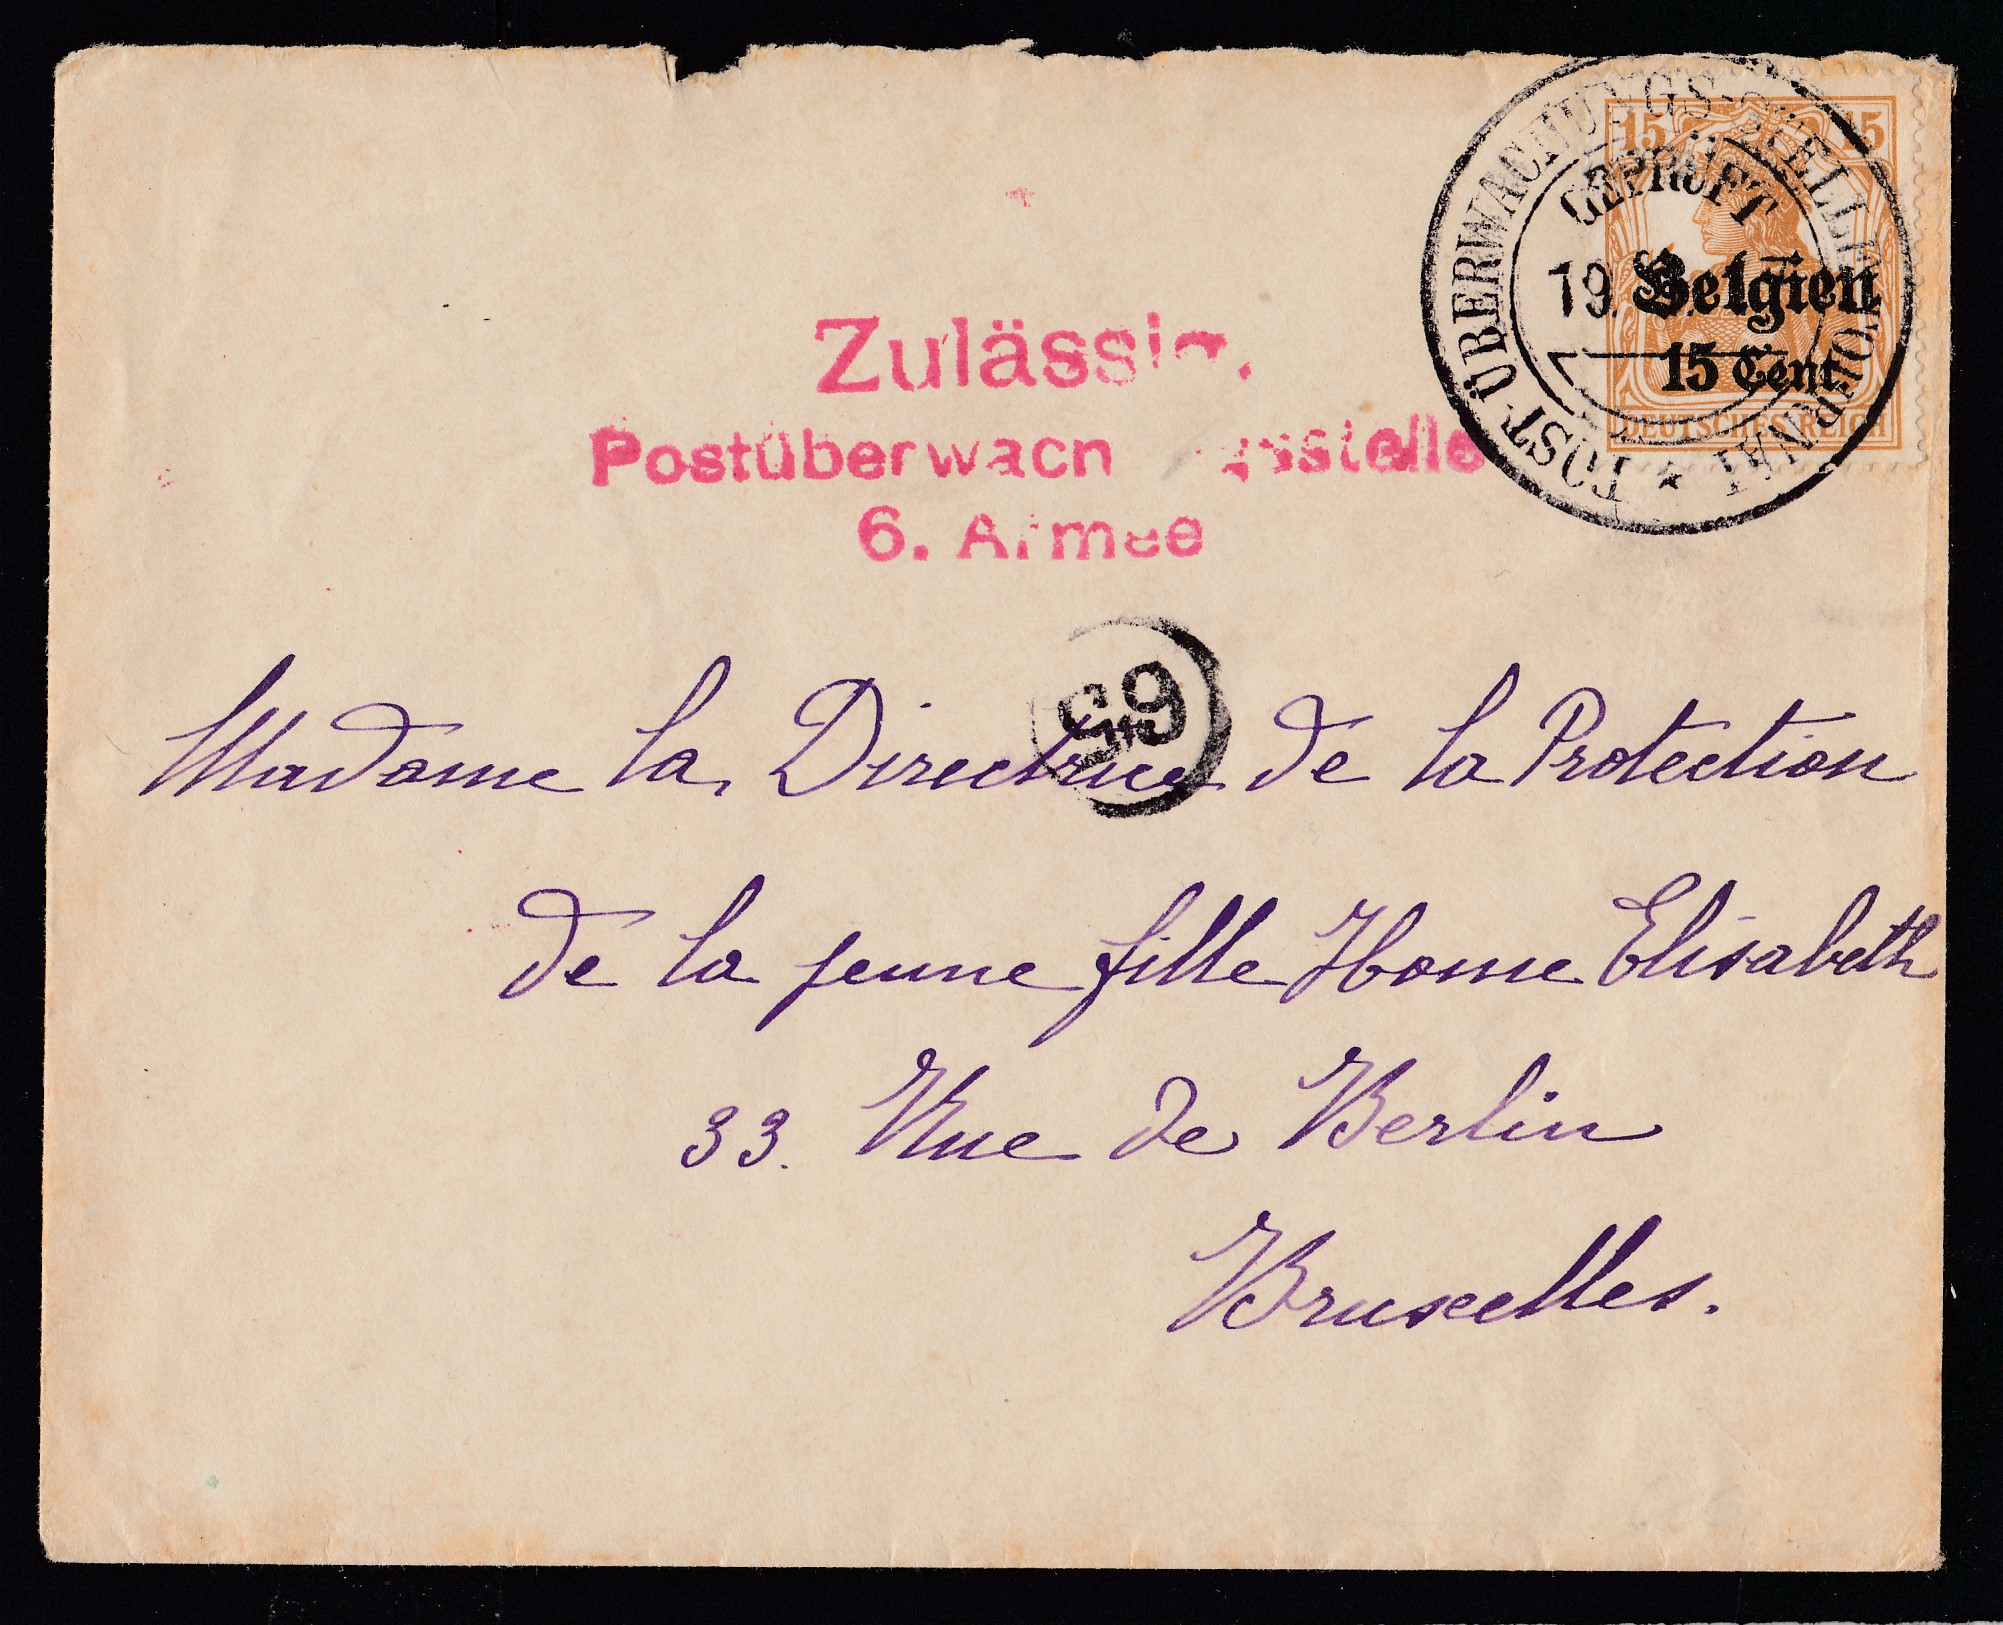 15 15
POST-ÜBERWACHUNGS-STELLE TOURNAI
GEPRÜFT
19.
Belgien
15 Cent.
DEUTSCHES REICH
Zulässig.
Postüberwachungsstelle
6. Armee
Madame la Directrice de la Protection
de la jeune fille Home Elisabeth
33. Rue de Berlin
Bruxelles.